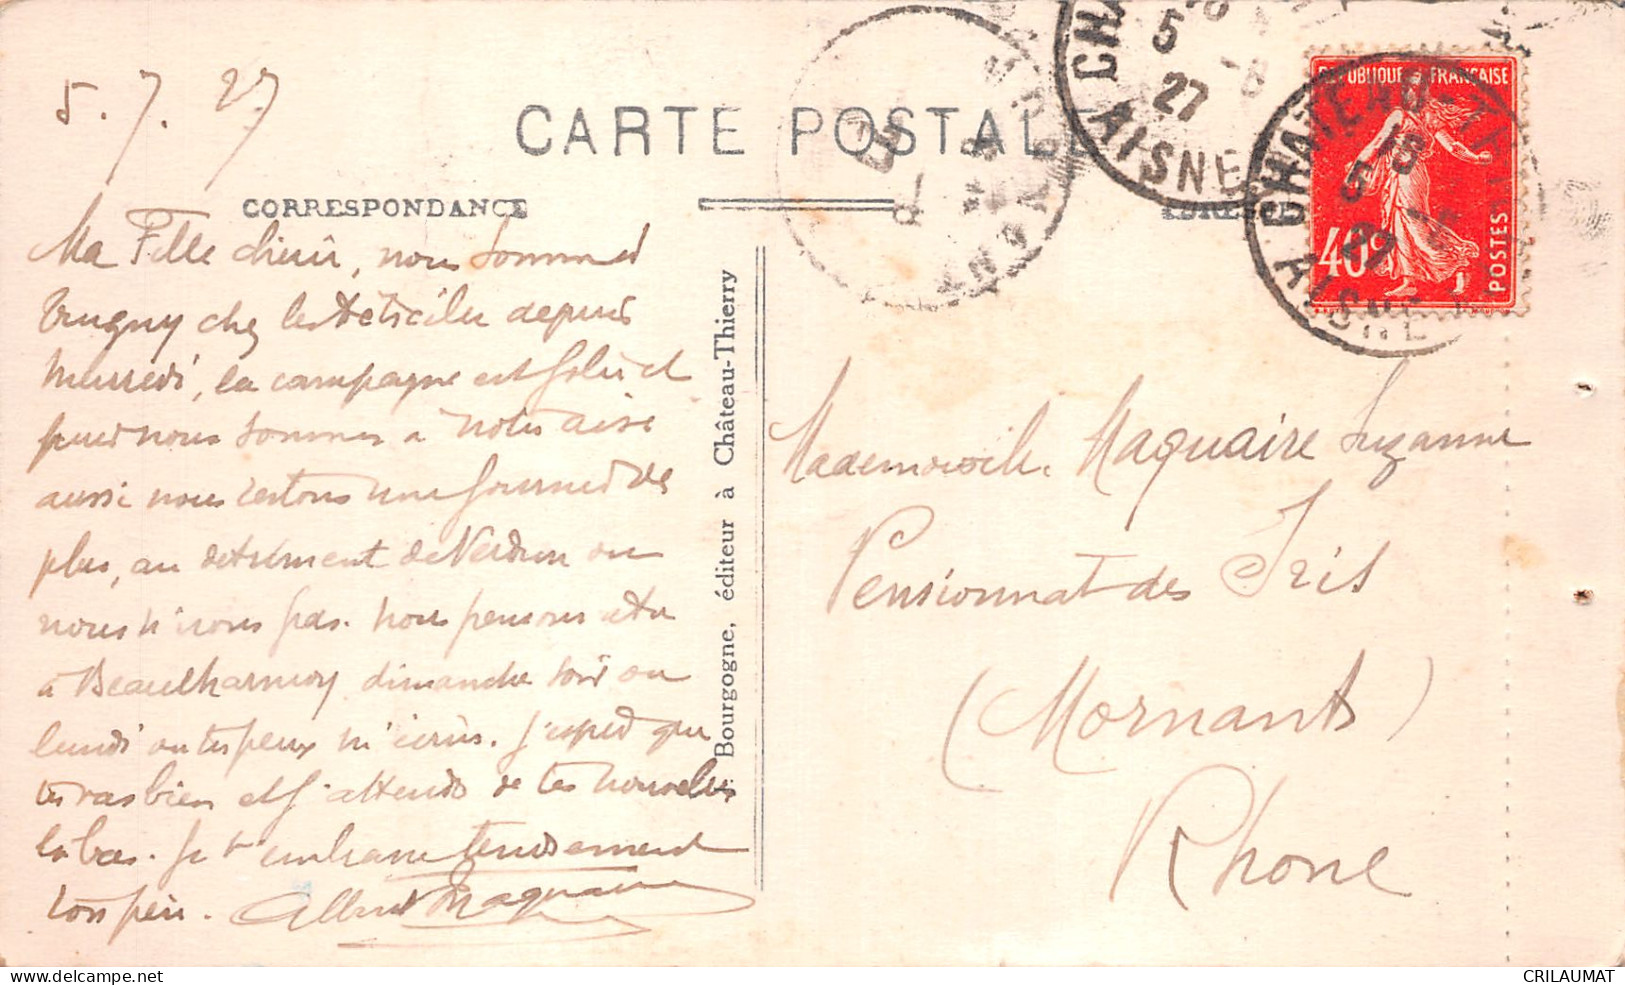 5.7.27
CARTE POSTALE
CORRESPONDANCE
Ma Fille chérie, nous sommes
Trugny chez les depuis
la campagne est jolie et
nous sommes à notre aise
aussi nous restons une journée de
plus, au détriment de Verdun ou
nous n'irons pas. Nous pensons être
à dimanche soir ou
lundi ou tu peux m'écrire. J'espère que
tu vas bien et j'attends de tes nouvelles
la bas. Je t'embrasse tendrement
ton père. Albert Maquaire
Bourgogne, éditeur à Château-Thierry
CHA
5
27
AISNE
RÉPUBLIQUE FRANÇAISE
40c
POSTES
CHATEAU-TH
5
27
AISNE
Mademoiselle Maquaire Suzanne
Pensionnat des Iris
(Mornants)
Rhone
www.delcampe.net
CRILAUMAT